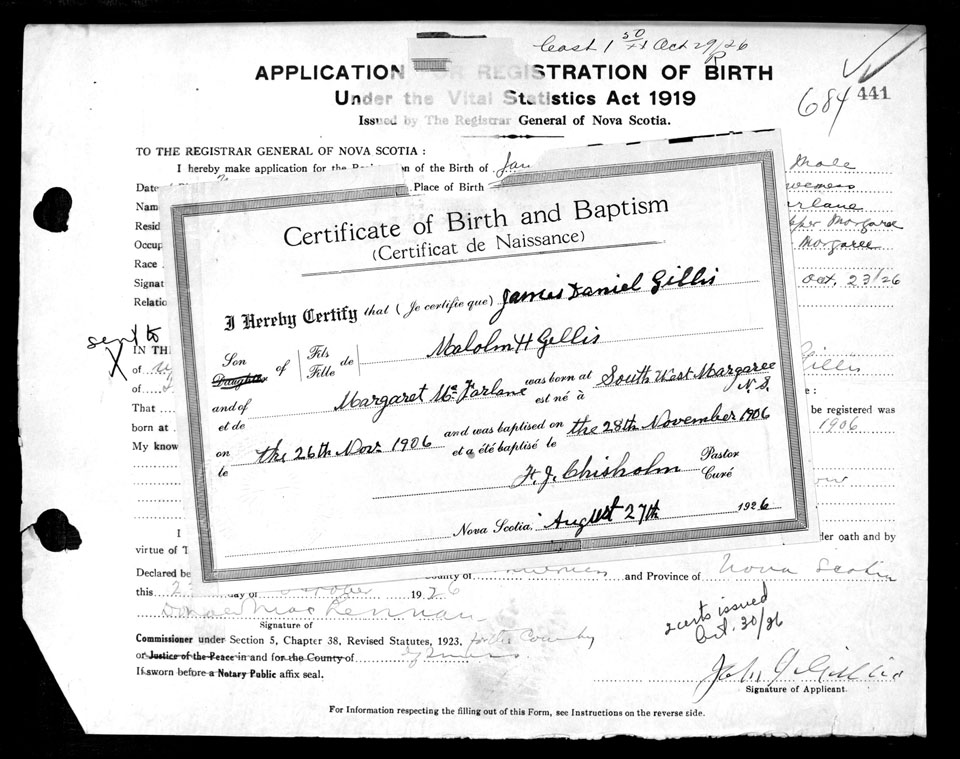 Cash 1 50 Oct 29/26
APPLICATION FOR REGISTRATION OF BIRTH
Under the Vital Statistics Act 1919
684 441
Issued by The Registrar General of Nova Scotia.
TO THE REGISTRAR GENERAL OF NOVA SCOTIA :
I hereby make application for the of the Birth of Male
Date Place of Birth
Nam
Resid Upper Margaree
Occup Margaree
Race
Signat Oct. 23/26
Relatio
Certificate of Birth and Baptism
(Certificat de Naissance)
I Hereby Certify that (Je certifie que) James Daniel Gillis
Son Daughter of Fils Fille de Malolm H Gillis
and of et de Margaret Mc Farlane was born at est né à South West Margaree N.S.
on le the 26th Nov. 1906 and was baptised on et a été baptisé le the 28th November 1906
H. J. Chisholm Pastor Curé
Nova Scotia, August 27th 1926
sent to
X
IN TH
of Gillis
of
That be registered was
born at 1906
My know
I
virtue of T der oath and by
Declared be County of Inverness and Province of Nova Scotia
this day of October 1926
Donald MacLennan
Signature of
2 certs issued
Oct. 30/26
Commissioner under Section 5, Chapter 38, Revised Statutes, 1923. for the County
or Justice of the Peace in and for the County of of Inverness
If sworn before a Notary Public affix seal.
John J Gillis
Signature of Applicant.
For Information respecting the filling out of this Form, see Instructions on the reverse side.